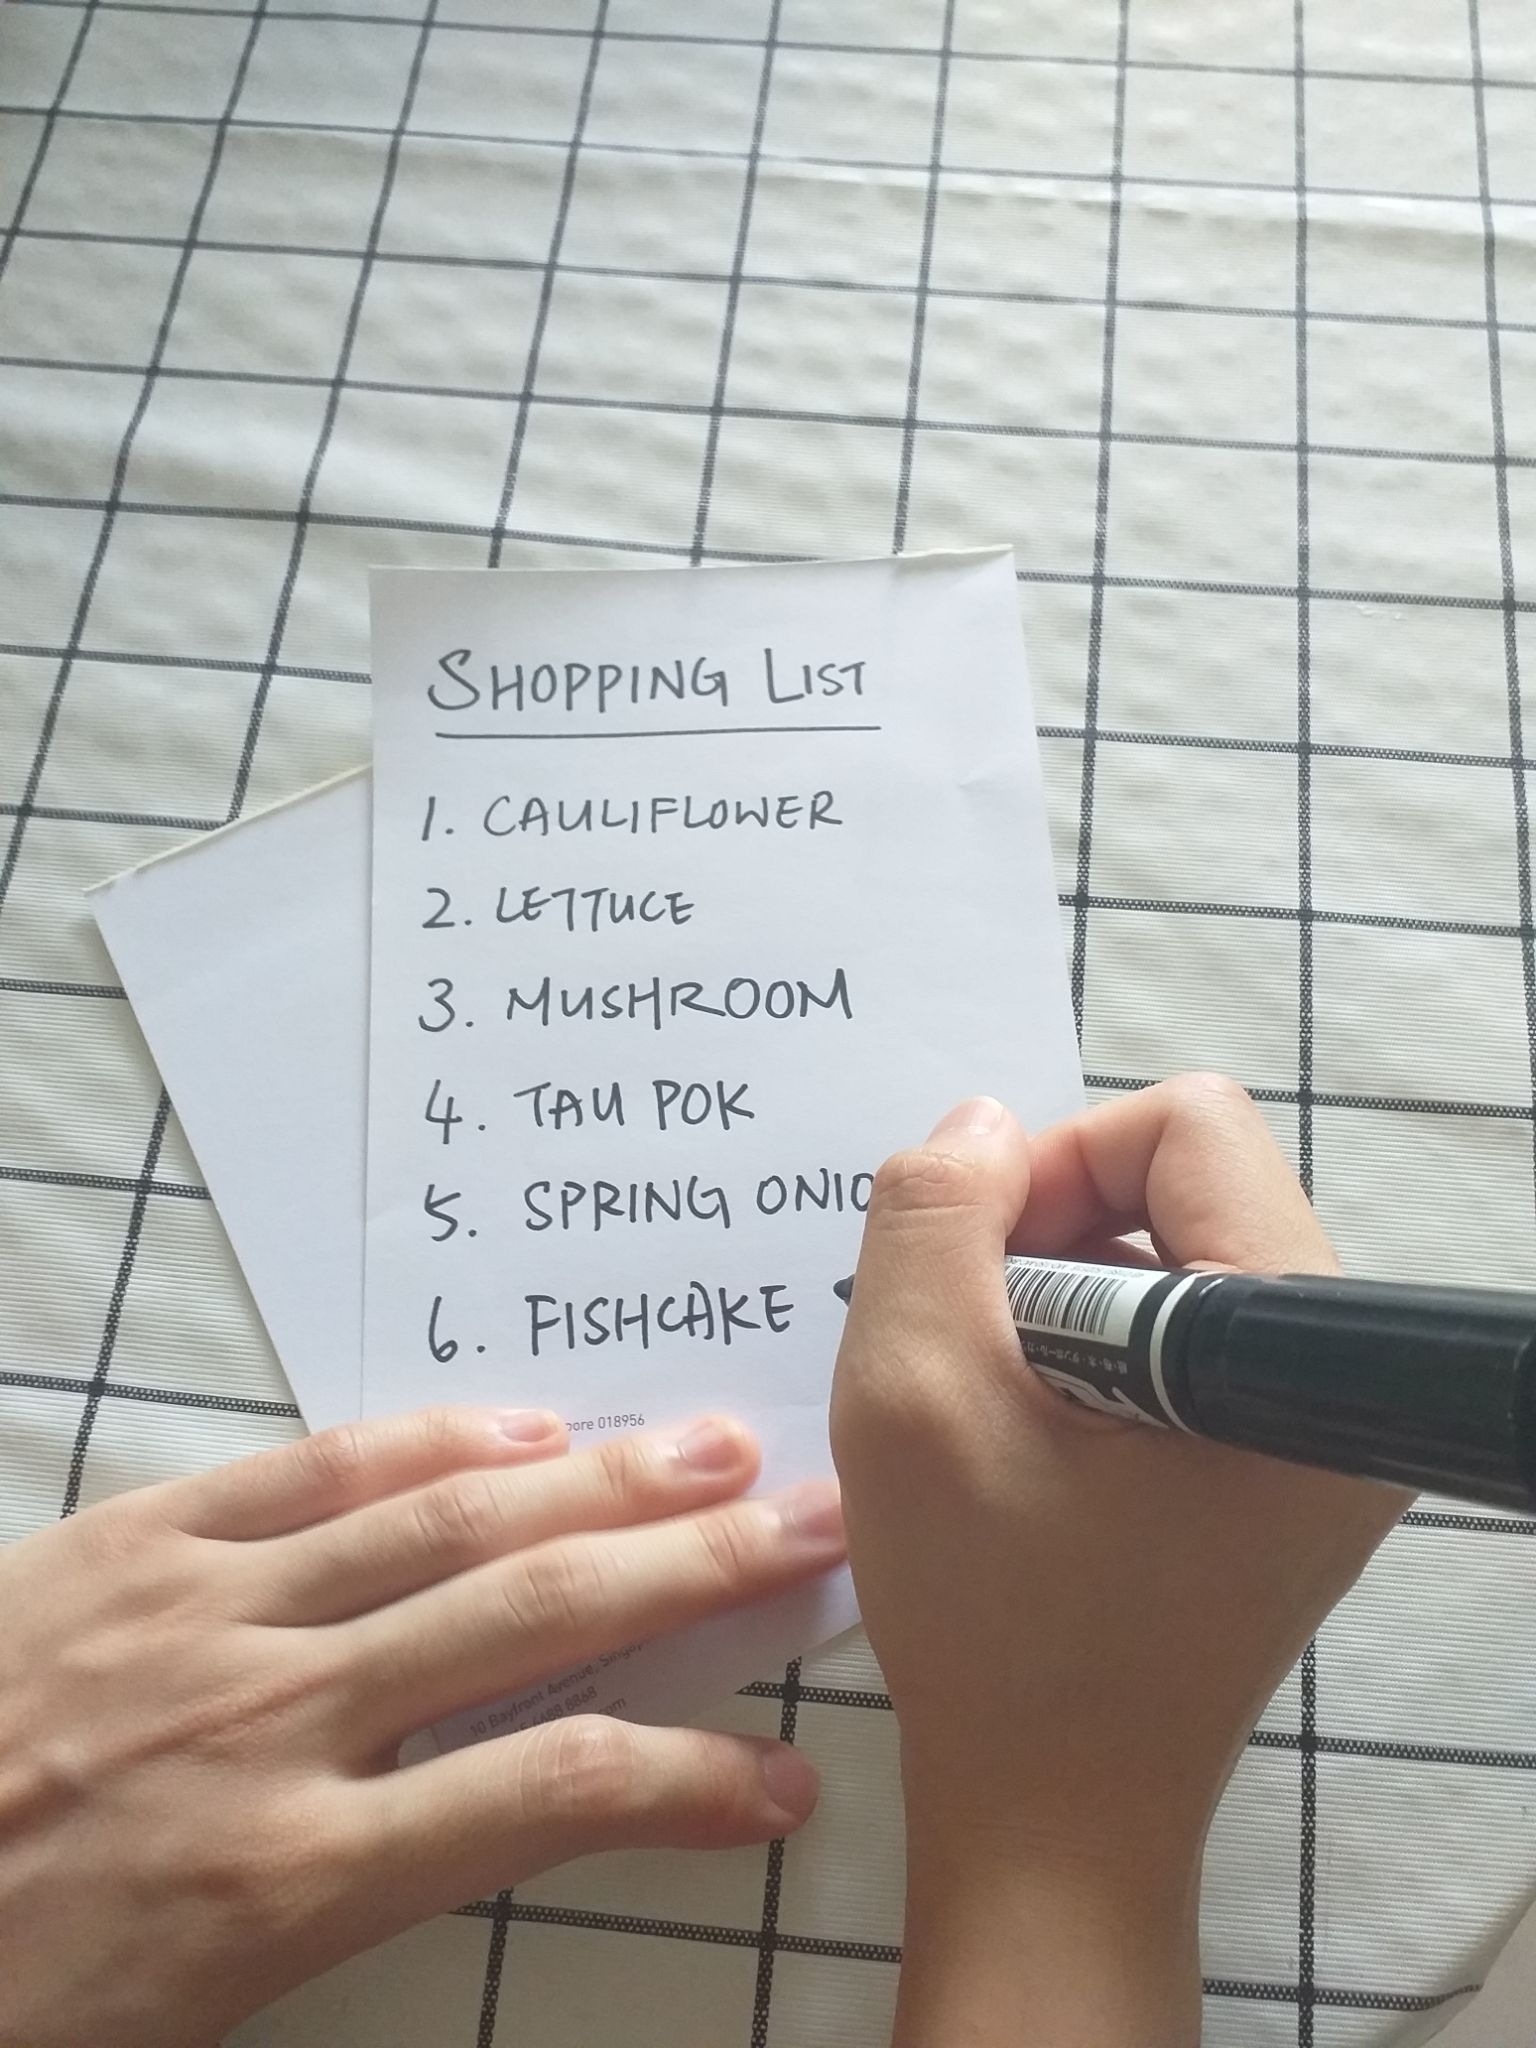 SHOPPING LIST
1. CAULIFLOWER
2. LETTUCE
3. MUSHROOM
4. TAU POK
5. SPRING ONIO
6. FISHCAKE
pore 018956
10 Bayfront Avenue, Singap
6688 8868
com